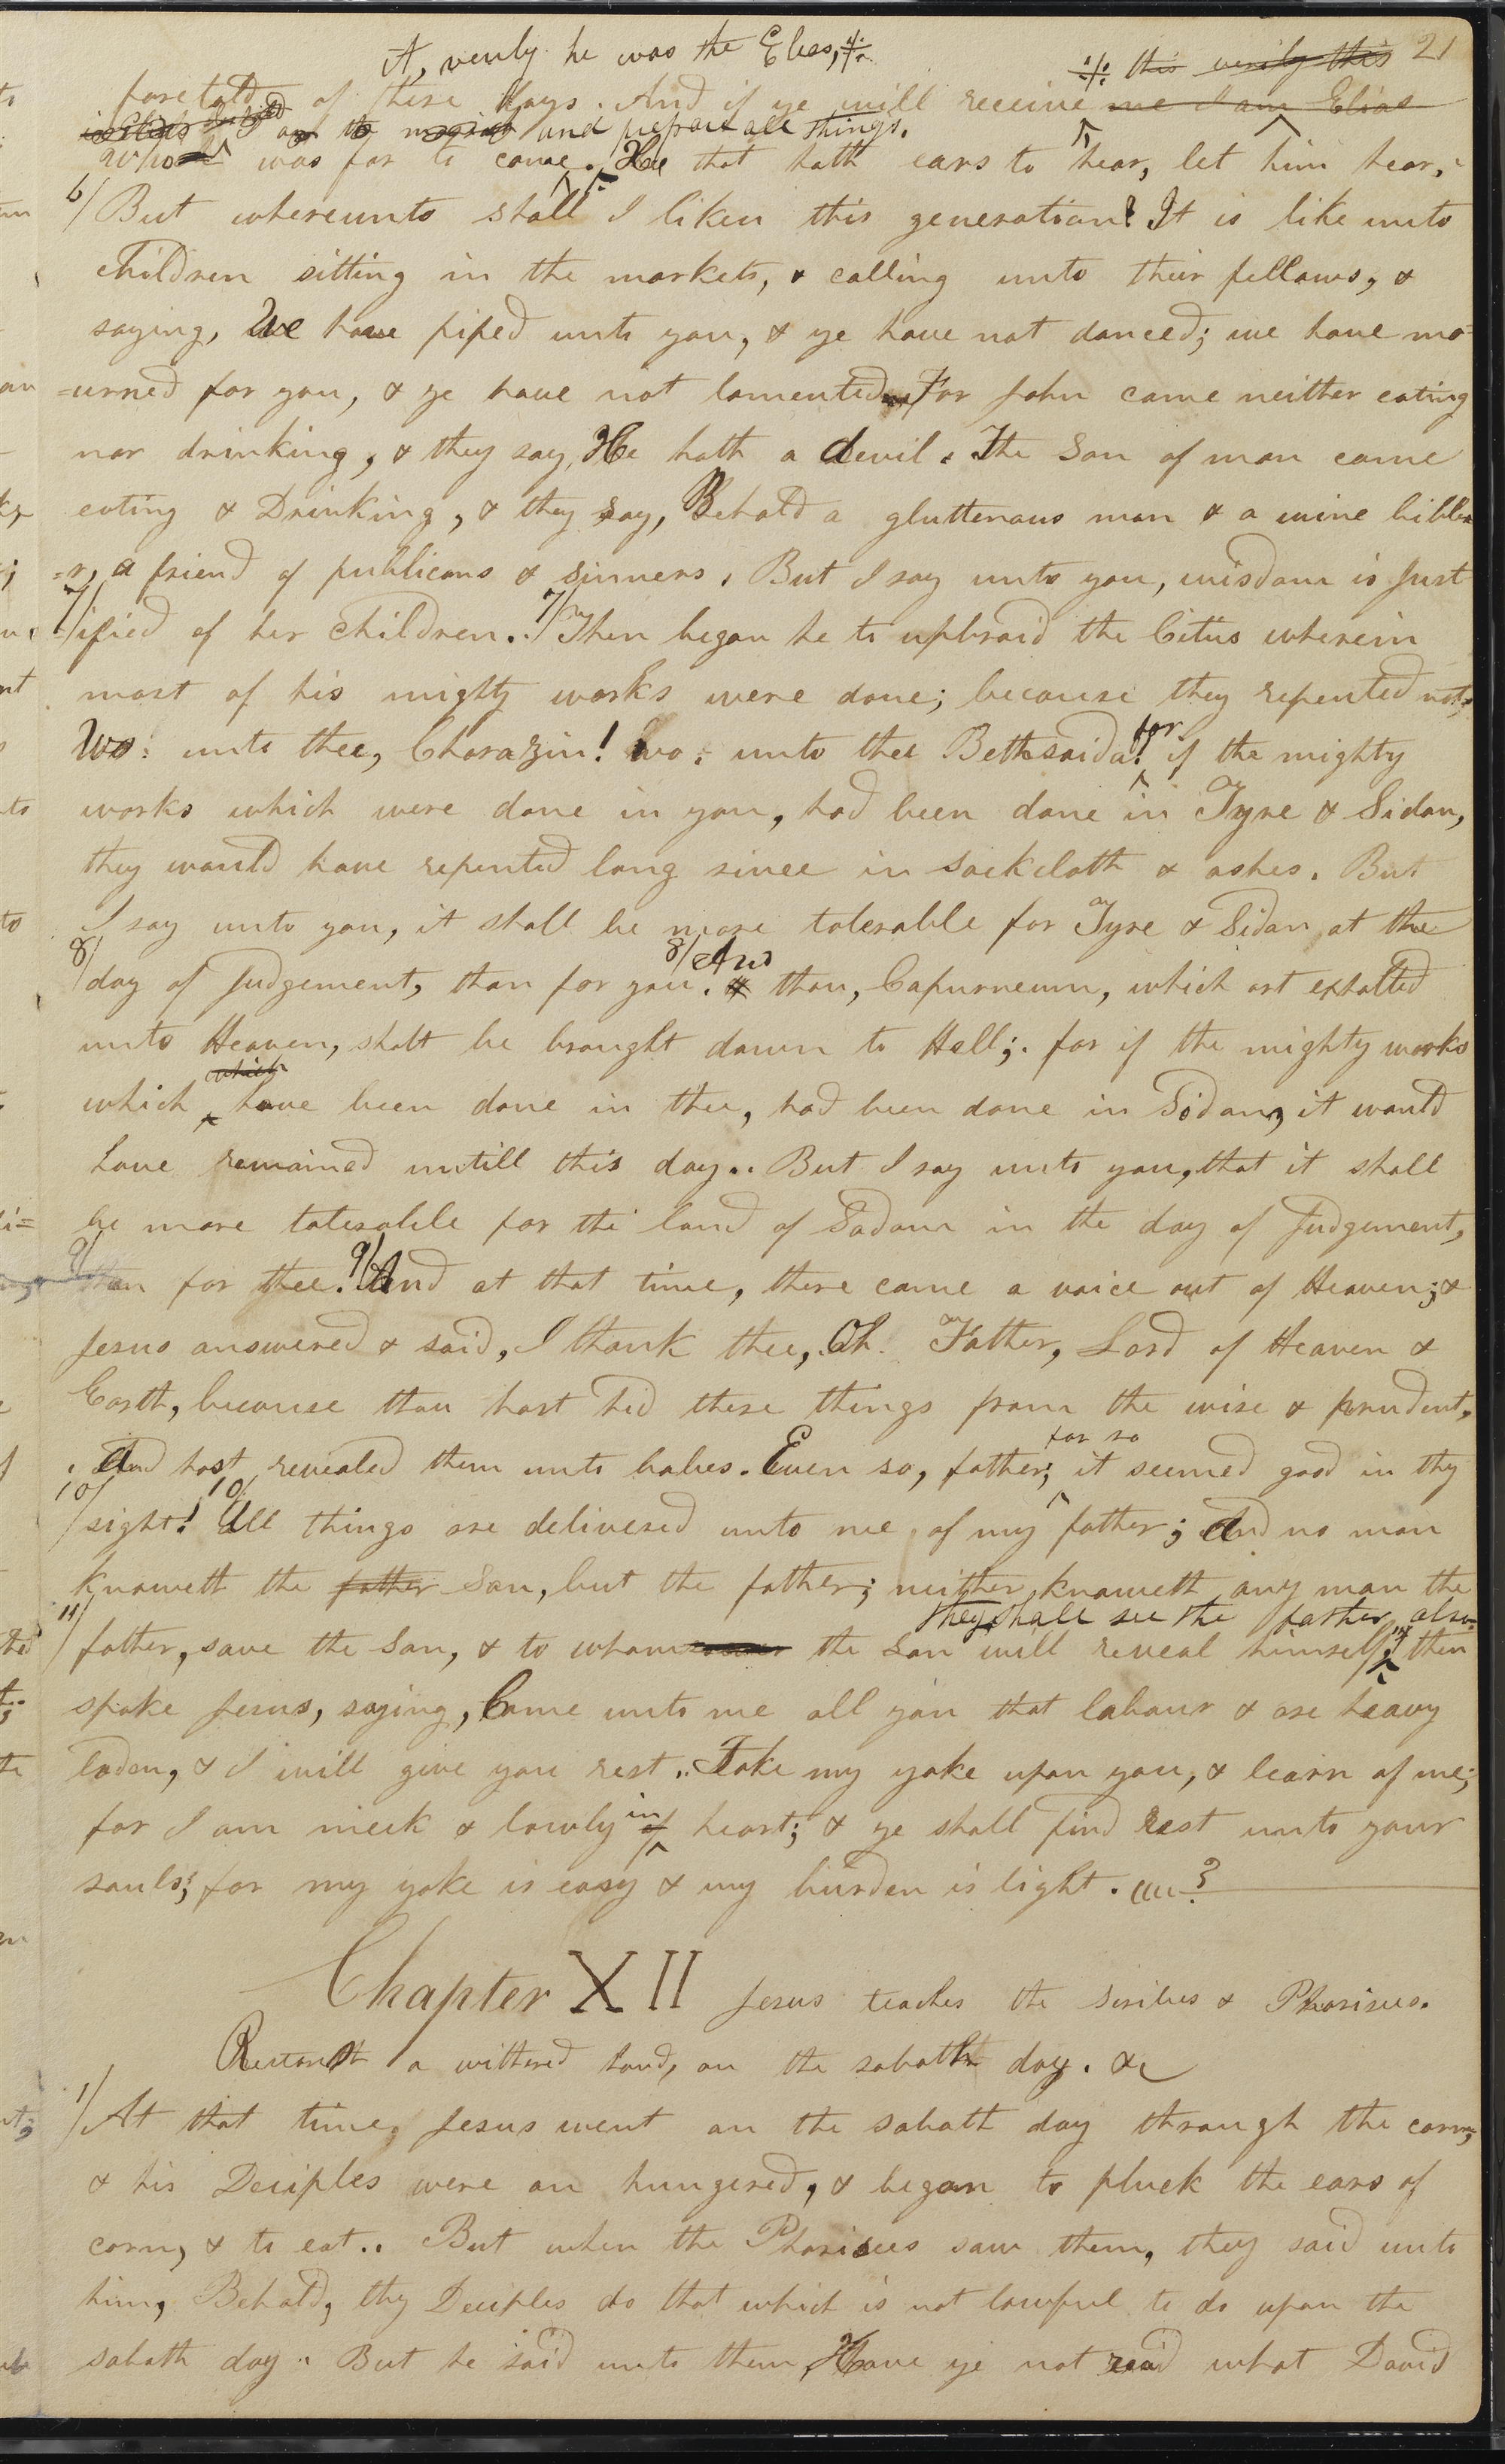 it, verily he was the Elias,
this verily this 21
foretold of these days. And if ye will receive me I am Elias
and prepare all things.
who was for to come. He that hath ears to hear, let him hear.
6/ But whereunto shall I liken this generation? It is like unto
children sitting in the markets, & calling unto their fellows, &
saying, We have piped unto you, & ye have not danced; we have mo-
=urned for you, & ye have not lamented. For John came neither eating
nor drinking, & they say, He hath a devil. The Son of man came
eating & Drinking, & they say, Behold a gluttenous man & a wine bibbe
=r, a friend of publicans & sinners. But I say unto you, wisdom is Just
7/ =ified of her children.. 7/ Then began he to upbraid the Cities wherein
most of his mighty works were done; because they repented not;
for
Wo: unto thee, Chorazin! wo: unto thee Bethsaida! if the mighty
works which were done in you, had been done in Tyre & Sidon,
they would have repented long since in Sackcloth & ashes. But
I say unto you, it shall be more tolerable for Tyre & Sidon at the
8/ 8/ And
day of Judgement, than for you. thou, Capurneum, which art exhalted
unto Heaven, shalt be brought down to Hell; for if the mighty works
which
which have been done in thee, had been done in Sodom, it would
have remained untill this day.. But I say unto you, that it shall
be more tolerable for the land of Sodom in the day of Judgement,
9/ than for thee. 9/ And at that time, there came a voice out of Heaven; &
Jesus answered & said, I thank thee, Oh. Father, Lord of Heaven &
Earth, because thou hast hid these things from the wise & prudent,
for so
and hast revealed them unto babes. Even so, father; it seemed good in thy
10/ sight! 10/ All things are delivered unto me of my father; and no man
knoweth the father Son, but the father; neither knoweth any man the
they shall see the father also
11/ father, save the Son, & to whom the Son will reveal himself; 11/ then
spake Jesus, saying, Come unto me all you that labour & are heavy
laden, & I will give you rest.. Take my yoke upon you, & learn of me;
in
for I am meek & lowly of heart; & ye shall find rest unto your
souls; for my yoke is easy & my burden is light.
Chapter XII Jesus teaches the Scribes & Pharisees.
Restoreth a withered hand, on the sabath day. &c
1/ At that time, Jesus went on the sabath day through the corn;
& his Deciples were an hungered, & began to pluck the ears of
corn, & to eat.. But when the Pharisees saw them, they said unto
him, Behold, thy Deciples do that which is not lawful to do upon the
sabath day.. But he said unto them Have ye not read what David